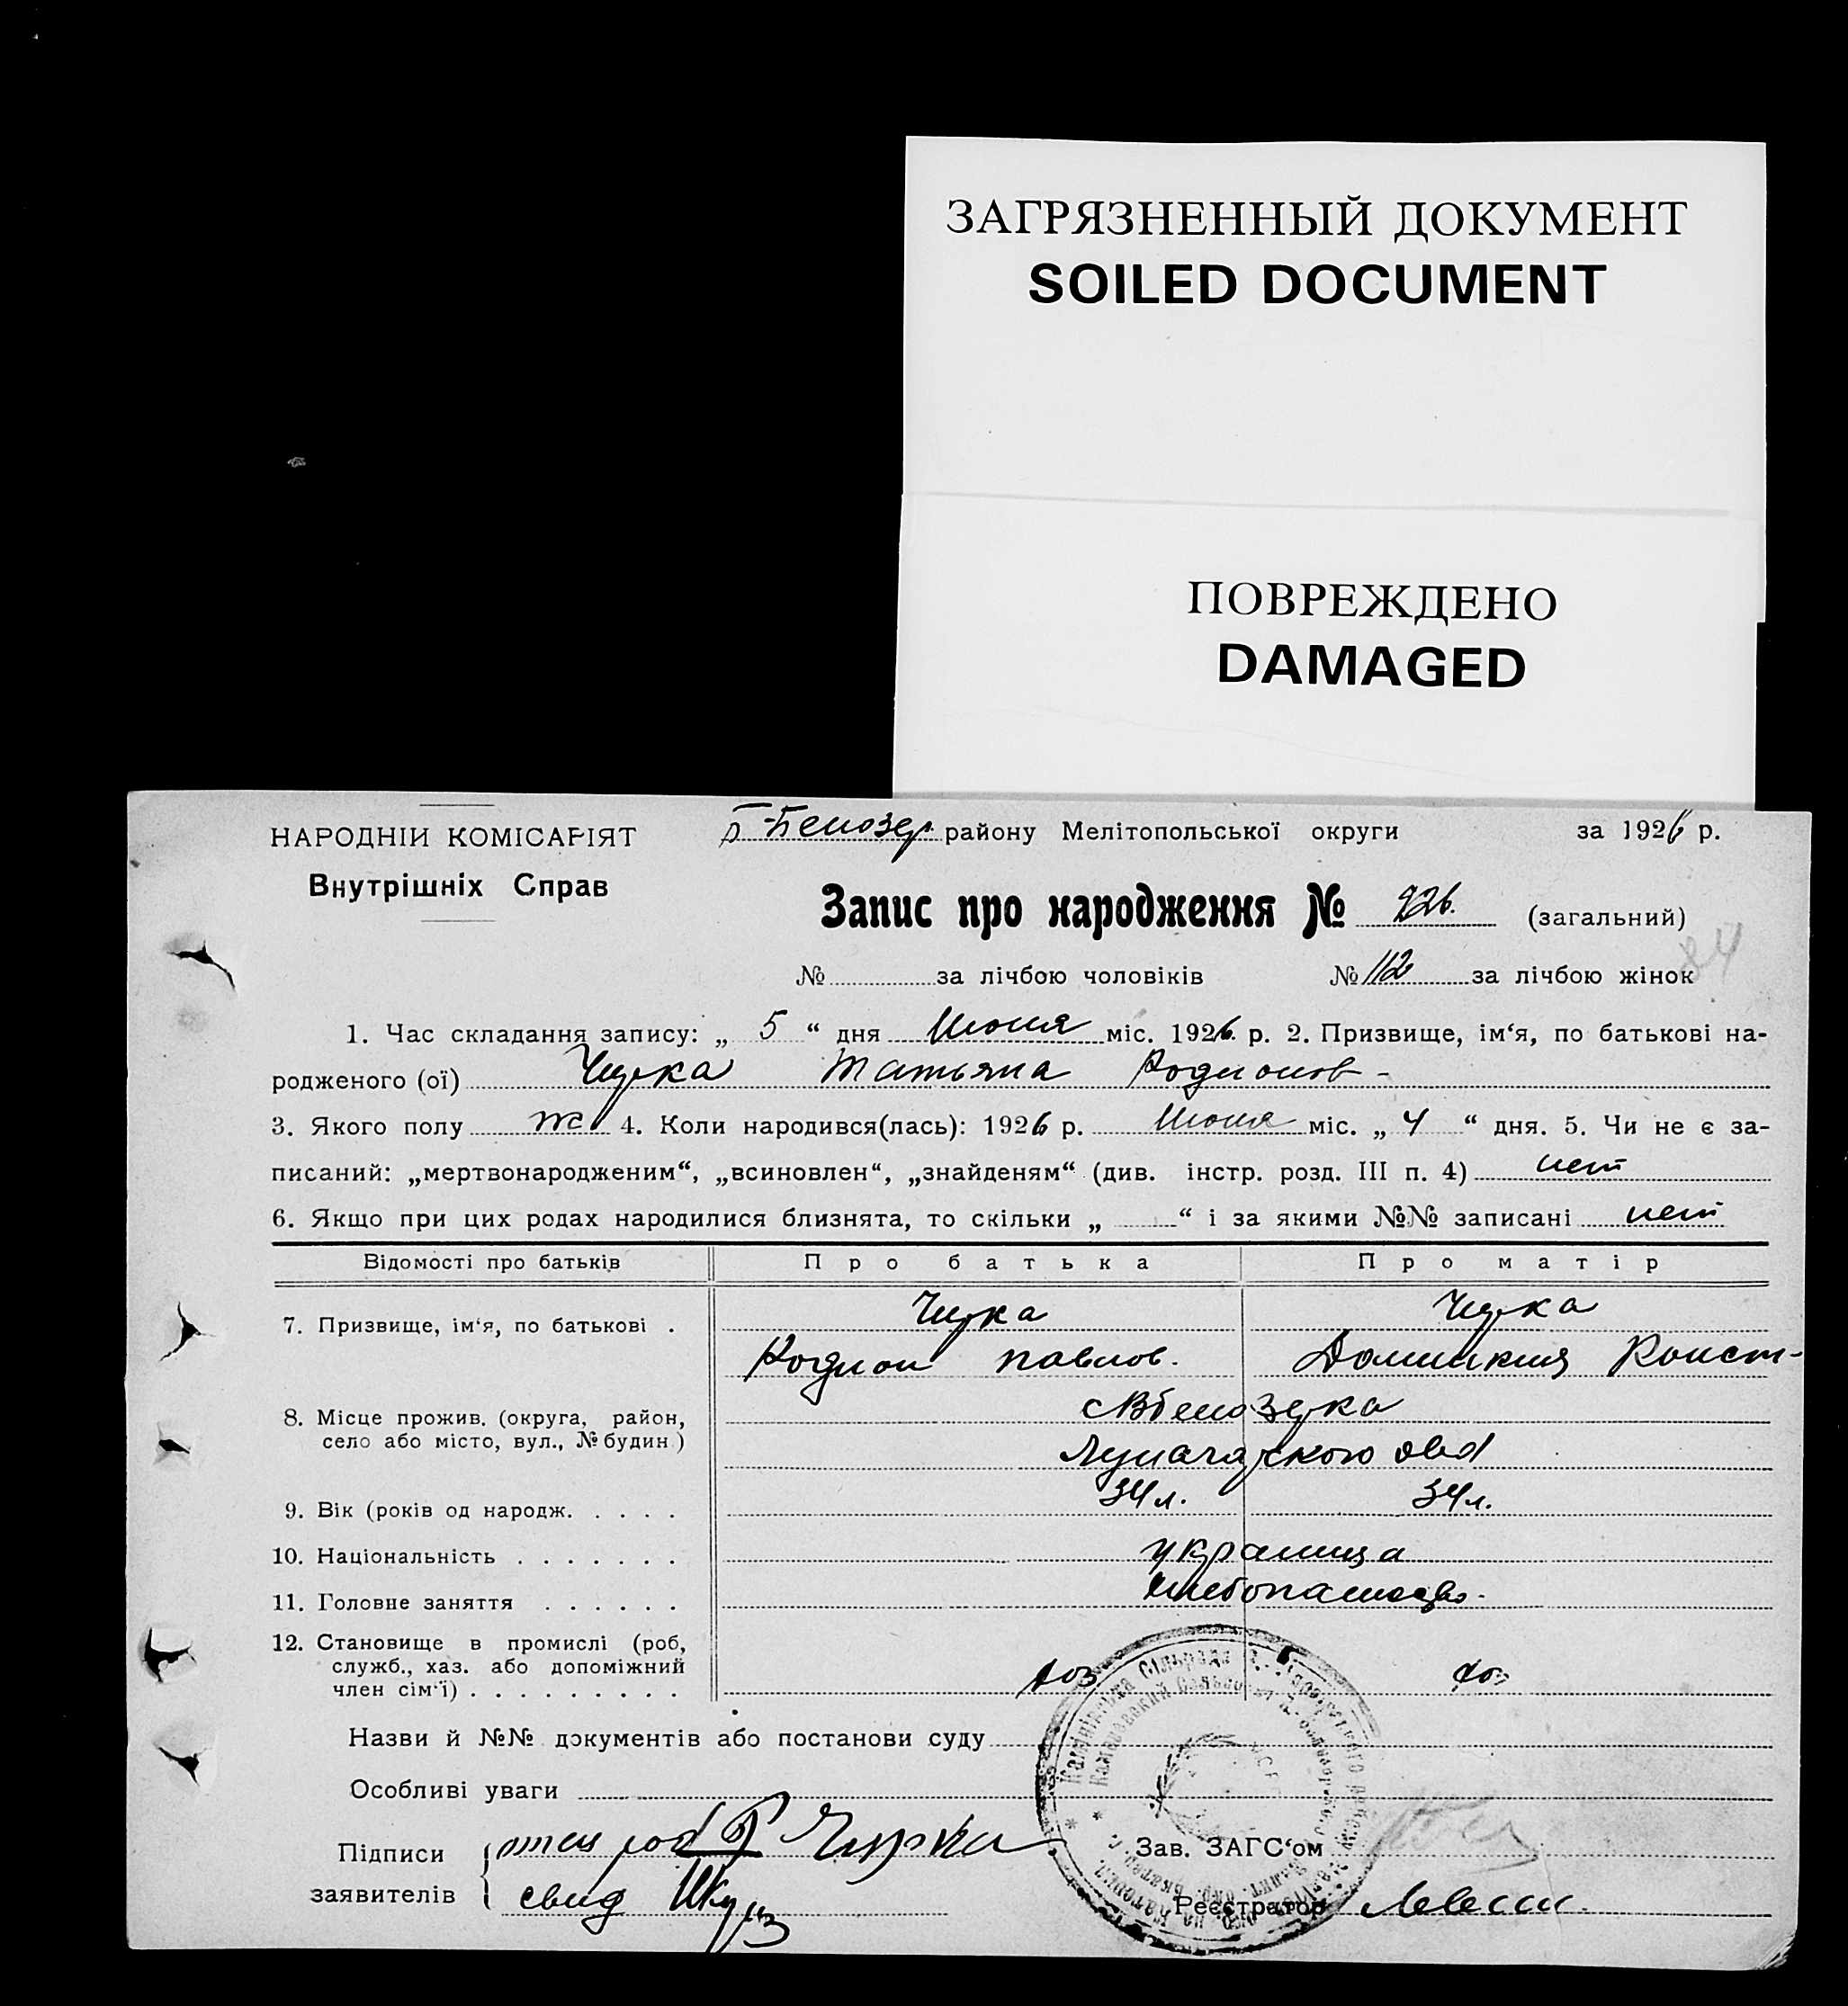 ЗАГРЯЗНЕННЫЙ ДОКУМЕНТ
SOILED DOCUMENT
ПОВРЕЖДЕНО
DAMAGED
НАРОДНІЙ КОМІСАРІЯТ
Внутрішніх Справ
Б-Белозер. району Мелітопольської округи за 1926 р.
Запис про народження № 226. (загальний)
84
№ за лічбою чоловіків № 112 за лічбою жінок
1. Час складання запису: „ 5 “ дня Июня міс. 1926. р. 2. Призвище, ім‘я, по батькові на-
родженого (ої) Чирка Татьяна Родионов-
3. Якого полу ж 4. Коли народився(лась): 1926 р. Июня міс. „ 4 “ дня. 5. Чи не є за-
писаний: „мертвонародженим“, „всиновлен“, „знайденям“ (див. інстр. розд. III п. 4) нет
6. Якщо при цих родах народилися близнята, то скільки „ “ і за якими №№ записані нет
Відомості про батьків Про батька Про матір
7. Призвище, ім‘я, по батькові . Чирка Чирка
Родион Павлов. Домникия Конст-
8. Місце прожив. (округа, район,
село або місто, вул., № будин.)
9. Вік (років од народж. . . . . 34 л. 34 л.
10. Національність . . . . . . . украинца
11. Головне заняття . . . . . . хлебопашество.
12. Становище в промислі (роб,
служб., хаз. або допоміжний
член сім‘ї) . . . . . . . . . хоз хоз
Назви й №№ документів або постанови суду
Особливі уваги
Підписи отец Чирка Зав. ЗАГС‘ом
заявителів свид Реєстратор